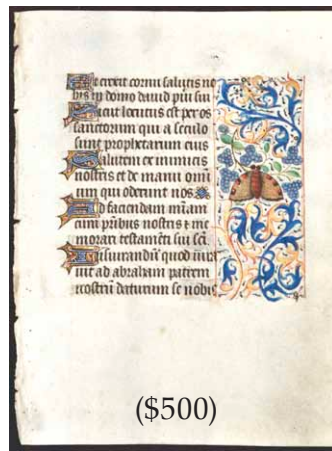 Et erexit cornu salutis no
bis in domo dauid pueri sui
Sicut locutus est per os
sanctorum qui a seculo
sunt prophetarum eius
Salutem ex inimicis
nostris et de manu omni
um qui oderunt nos
Ad faciendam mīam
cum pribus nostris et me
morari testamenti sui sct̄i
Iusiurandū quod iura
uit ad abraham patrem
nostrū daturum se nobis
($500)